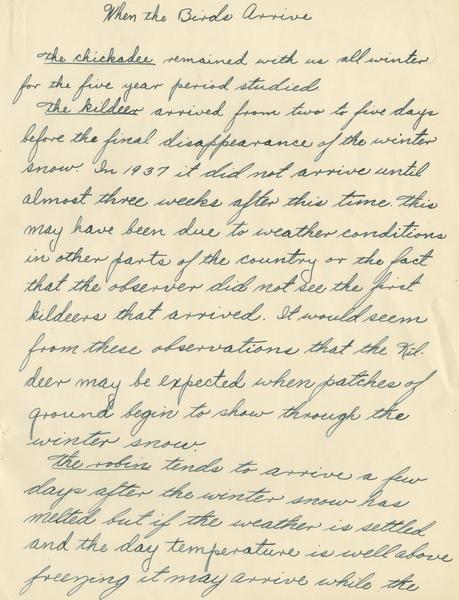 When the Birds Arrive
The chickadee remained with us all winter
for the five year period studied.
The kildeer arrived from two to five days
before the final disappearance of the winter
snow. In 1937 it did not arrive until
almost three weeks after this time. This
may have been due to weather conditions
in other parts of the country or the fact
that the observer did not see the first
kildeers that arrived. It would seem
from these observations that the Kil-
deer may be expected when patches of
ground begin to show through the
winter snow.
The robin tends to arrive a few
days after the winter snow has
melted but if the weather is settled
and the day temperature is well above
freezing it may arrive while the